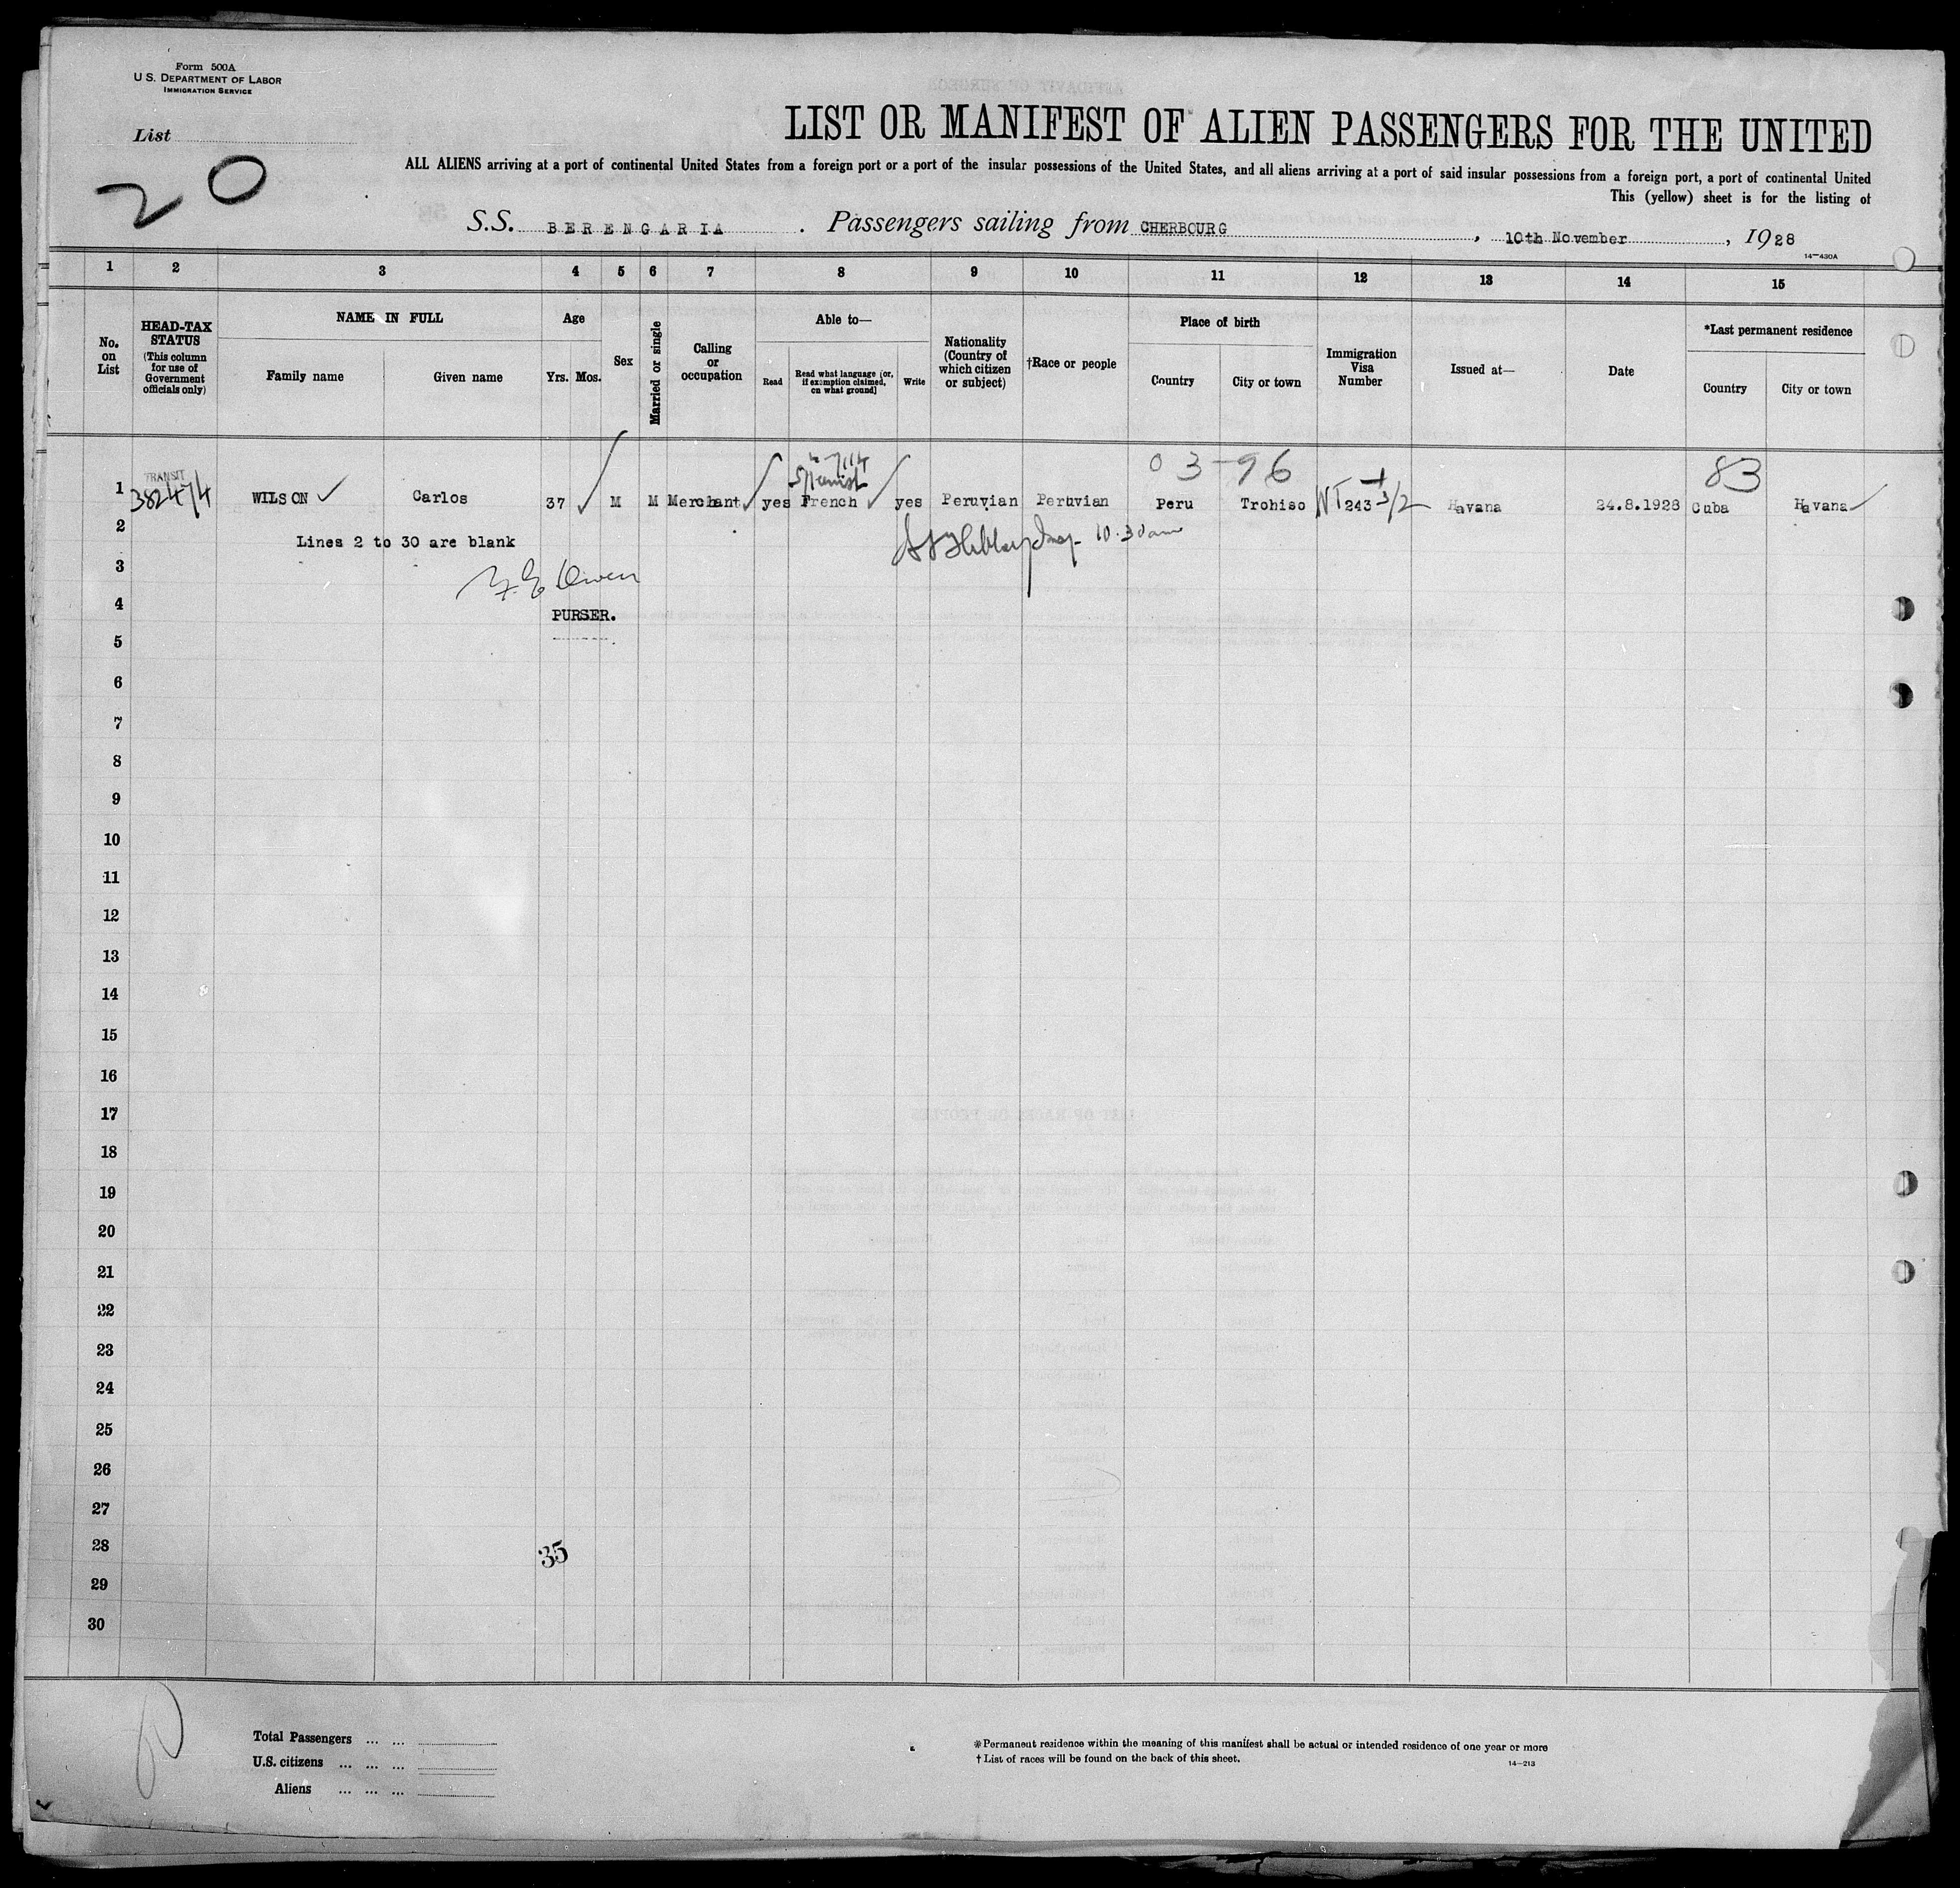 Form 500A
U S. DEPARTMENT OF LABOR
IMMIGRATION SERVICE
List
20
LIST OR MANIFEST OF ALIEN PASSENGERS FOR THE UNITED
ALL ALIENS arriving at a port of continental United States from a foreign port or a port of the insular possessions of the United States, and all aliens arriving at a port of said insular possessions from a foreign port, a port of continental United
This (yellow) sheet is for the listing of
S.S. BERENGARIA . Passengers sailing from CHERBOURG , 10th November , 1928
14—430A
1 2 3 4 5 6 7 8 9 10 11 12 13 14 15
No. on List
HEAD-TAX STATUS (This column for use of Government officials only)
NAME IN FULL
Family name Given name
Age
Yrs. Mos.
Sex
Married or single
Calling or occupation
Able to—
Read
Read what language (or, if exemption claimed, on what ground)
Write
Nationality (Country of which citizen or subject)
†Race or people
Place of birth
Country City or town
Immigration Visa Number
Issued at—
Date
*Last permanent residence
Country City or town
TRANSIT
Spanish
03-96
83
1 382474 WILSON ✓ Carlos 37 M M Merchant yes French yes Peruvian Peruvian Peru Trohiso NT 243 3/2 Havana 24.8.1928 Cuba Havana
2
Lines 2 to 30 are blank
10.30am
3
F. E. Owen
4
PURSER.
5
6
7
8
9
10
11
12
13
14
15
16
17
18
19
20
21
22
23
24
25
26
27
28
35
29
30
Total Passengers ... ...
U.S. citizens ... ... ...
Aliens ... ... ...
*Permanent residence within the meaning of this manifest shall be actual or intended residence of one year or more
† List of races will be found on the back of this sheet.
14—213